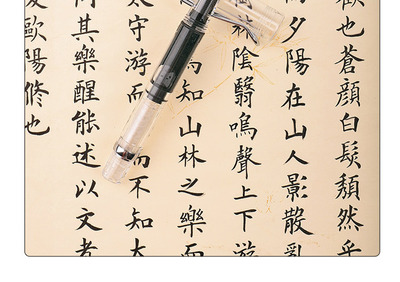 也蒼顏白髮頹然乎
夕陽在山人影散亂
林陰翳鳴聲上下游
知山林之樂而
守游而而不知太
其樂醒能述以文者
歐陽脩也